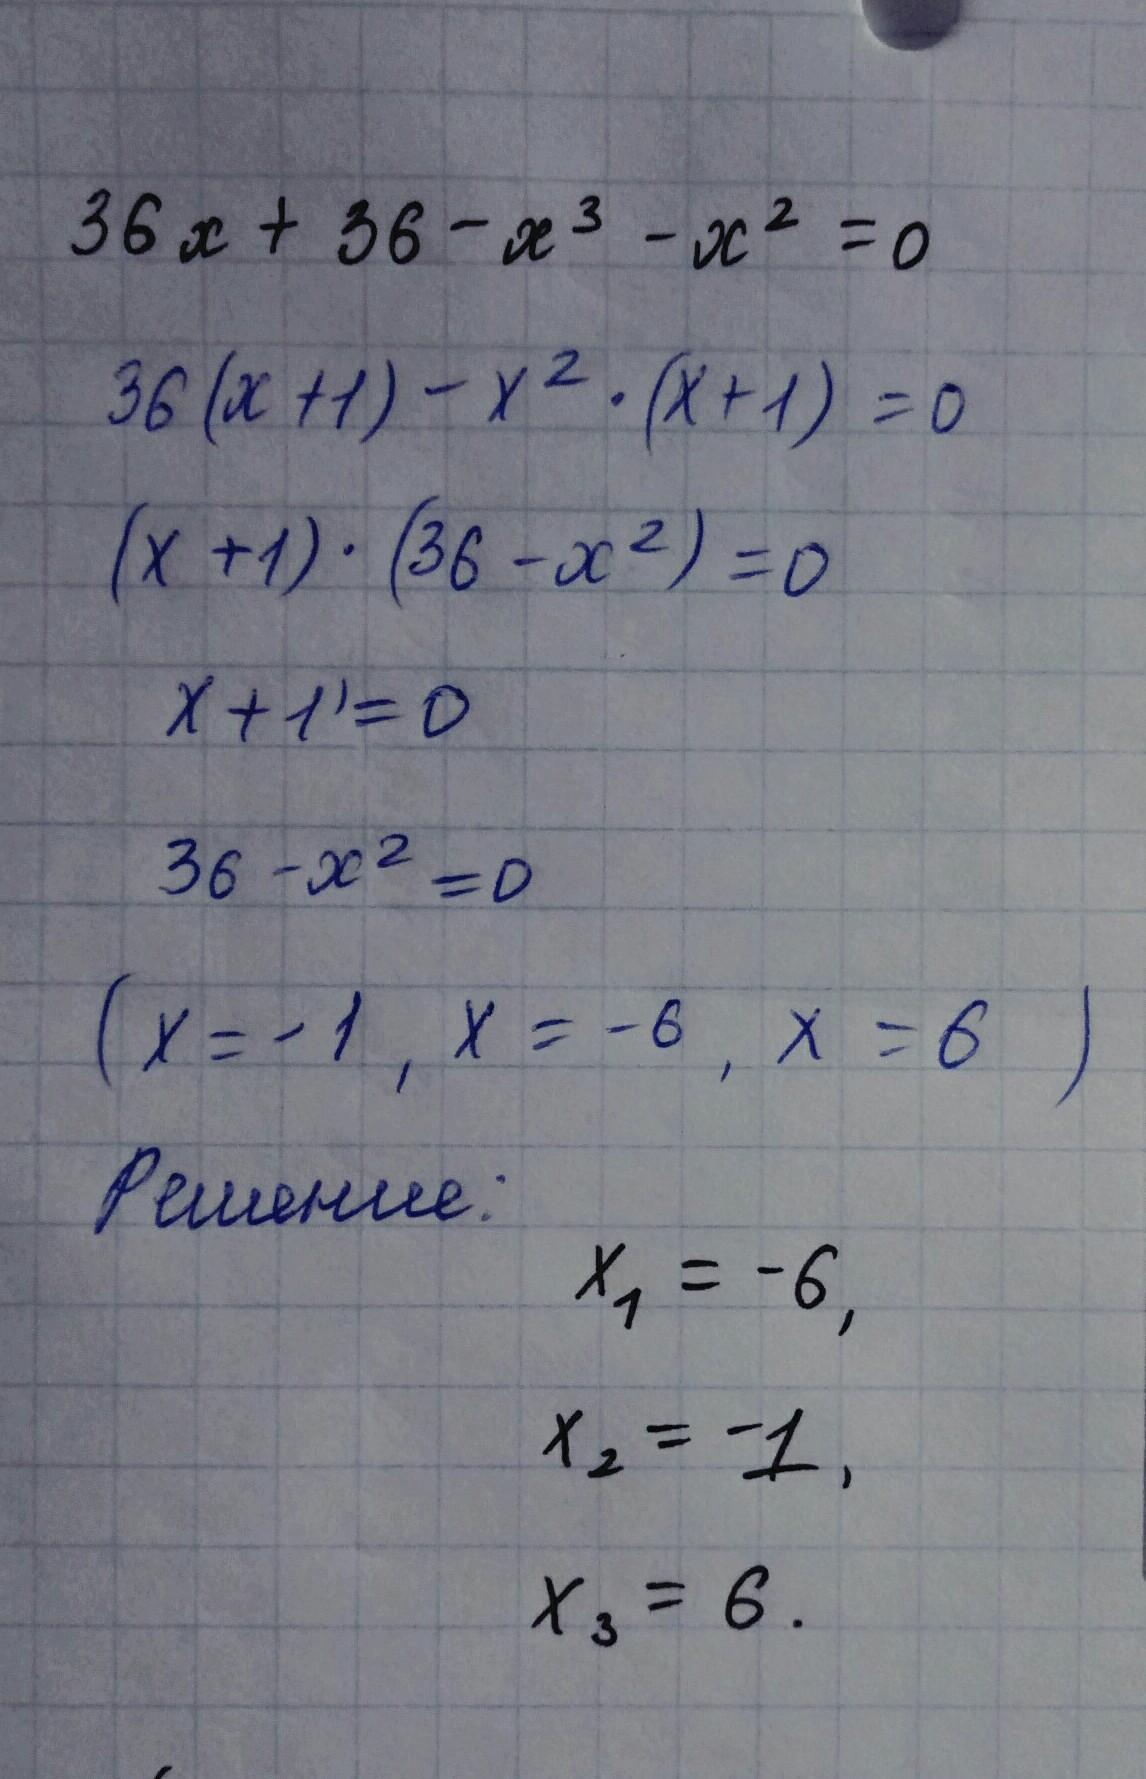 36x + 36 - x³ - x² = 0
36(x+1) - x² · (x+1) = 0
(x+1) · (36 - x²) = 0
x + 1 = 0
36 - x² = 0
(x = -1, x = -6, x = 6)
Решение:
x₁ = -6,
x₂ = -1,
x₃ = 6.